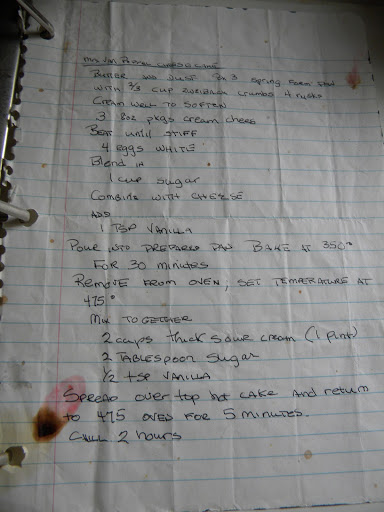 Mrs Van Pernis CHEESECAKE
BUTTER AND DUST 8x3 Spring Form PAN
WITH 2/3 CUP ZWEIBACK CRUMBS 4 RUSKS
CREAM WELL TO SOFTEN
3 8oz pkgs CREAM CHEESE
BEAT UNTIL STIFF
4 EGGS WHITE
Blend IN
1 CUP SUGAR
COMBINE WITH CHEESE
ADD
1 TSP VANILLA
POUR INTO PREPARED PAN BAKE AT 350°
FOR 30 MINUTES
REMOVE FROM OVEN; SET TEMPERATURE AT
475°
MIX TOGETHER
2 cups thick sour cream (1 pint)
2 TABLESPOON SUGAR
1/2 tsp VANILLA
SPREAD OVER TOP hot CAKE AND return
to 475 OVEN FOR 5 MINUTES.
CHILL 2 hours